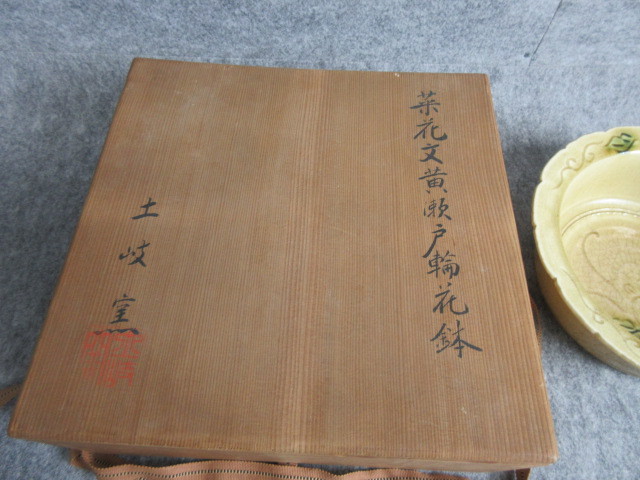 菜花文黄瀬戸輪花鉢
土岐窯